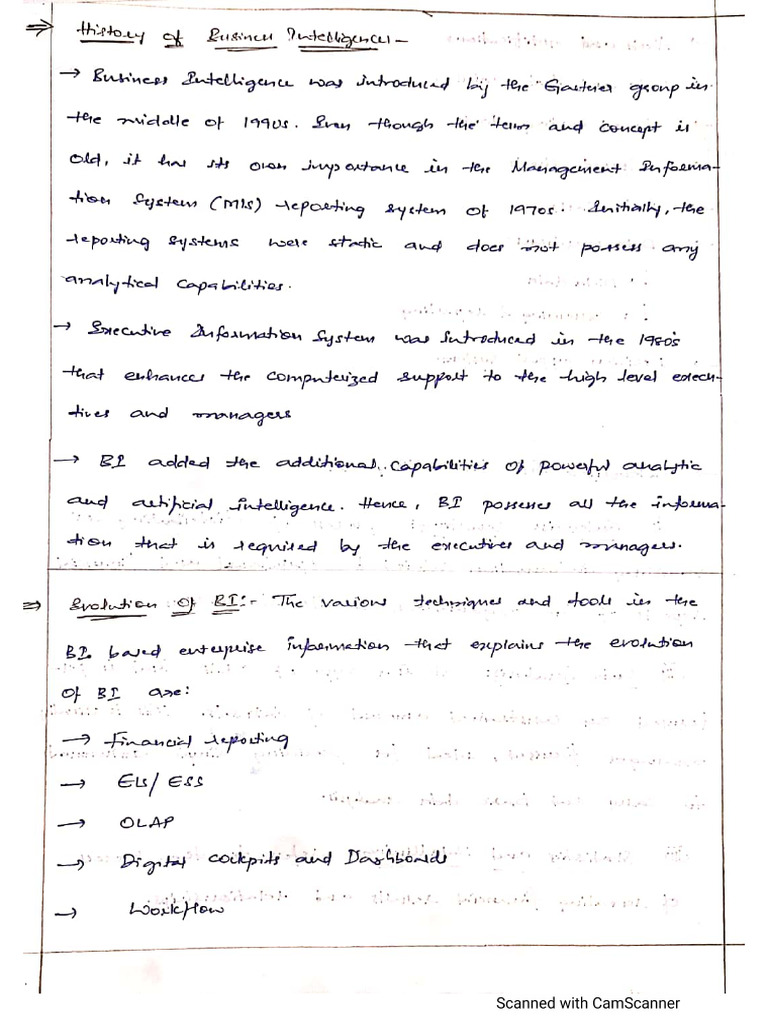 ⇒ History of Business Intelligence:-
→ Business Intelligence was introduced by the Gartner group in
the middle of 1990s. Even though the term and concept is
old, it has its own importance in the Management Informa-
tion System (MIS) reporting system of 1970s. Initially, the
reporting systems were static and does not possess any
analytical capabilities.
→ Executive Information System was introduced in the 1980's
that enhances the computerized support to the high level execu-
tives and managers
→ BI added the additional capabilities of powerful analytic
and artificial intelligence. Hence, BI possesses all the informa-
tion that is required by the executives and managers.
⇒ Evolution of BI:- The various techniques and tools in the
BI based enterprise information that explains the evolution
of BI are:
→ Financial reporting
→ EIS/ESS
→ OLAP
→ Digital cockpits and Dashboards
→ Workflow
Scanned with CamScanner